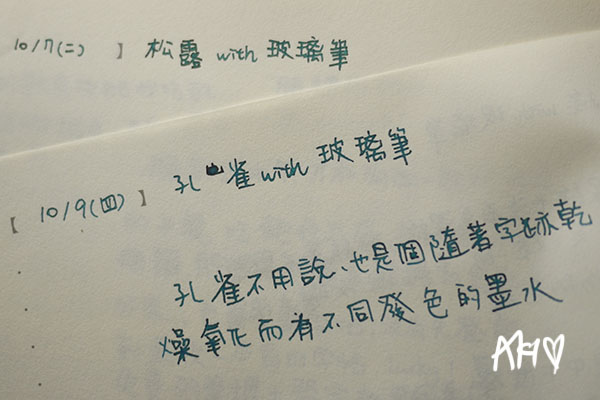 10/7(二) 】 松露 with 玻璃筆
孔雀 with 玻璃筆
【 10/9(四) 】
孔雀不用說、也是個隨著字跡乾
燥氧化而有不同發色的墨水